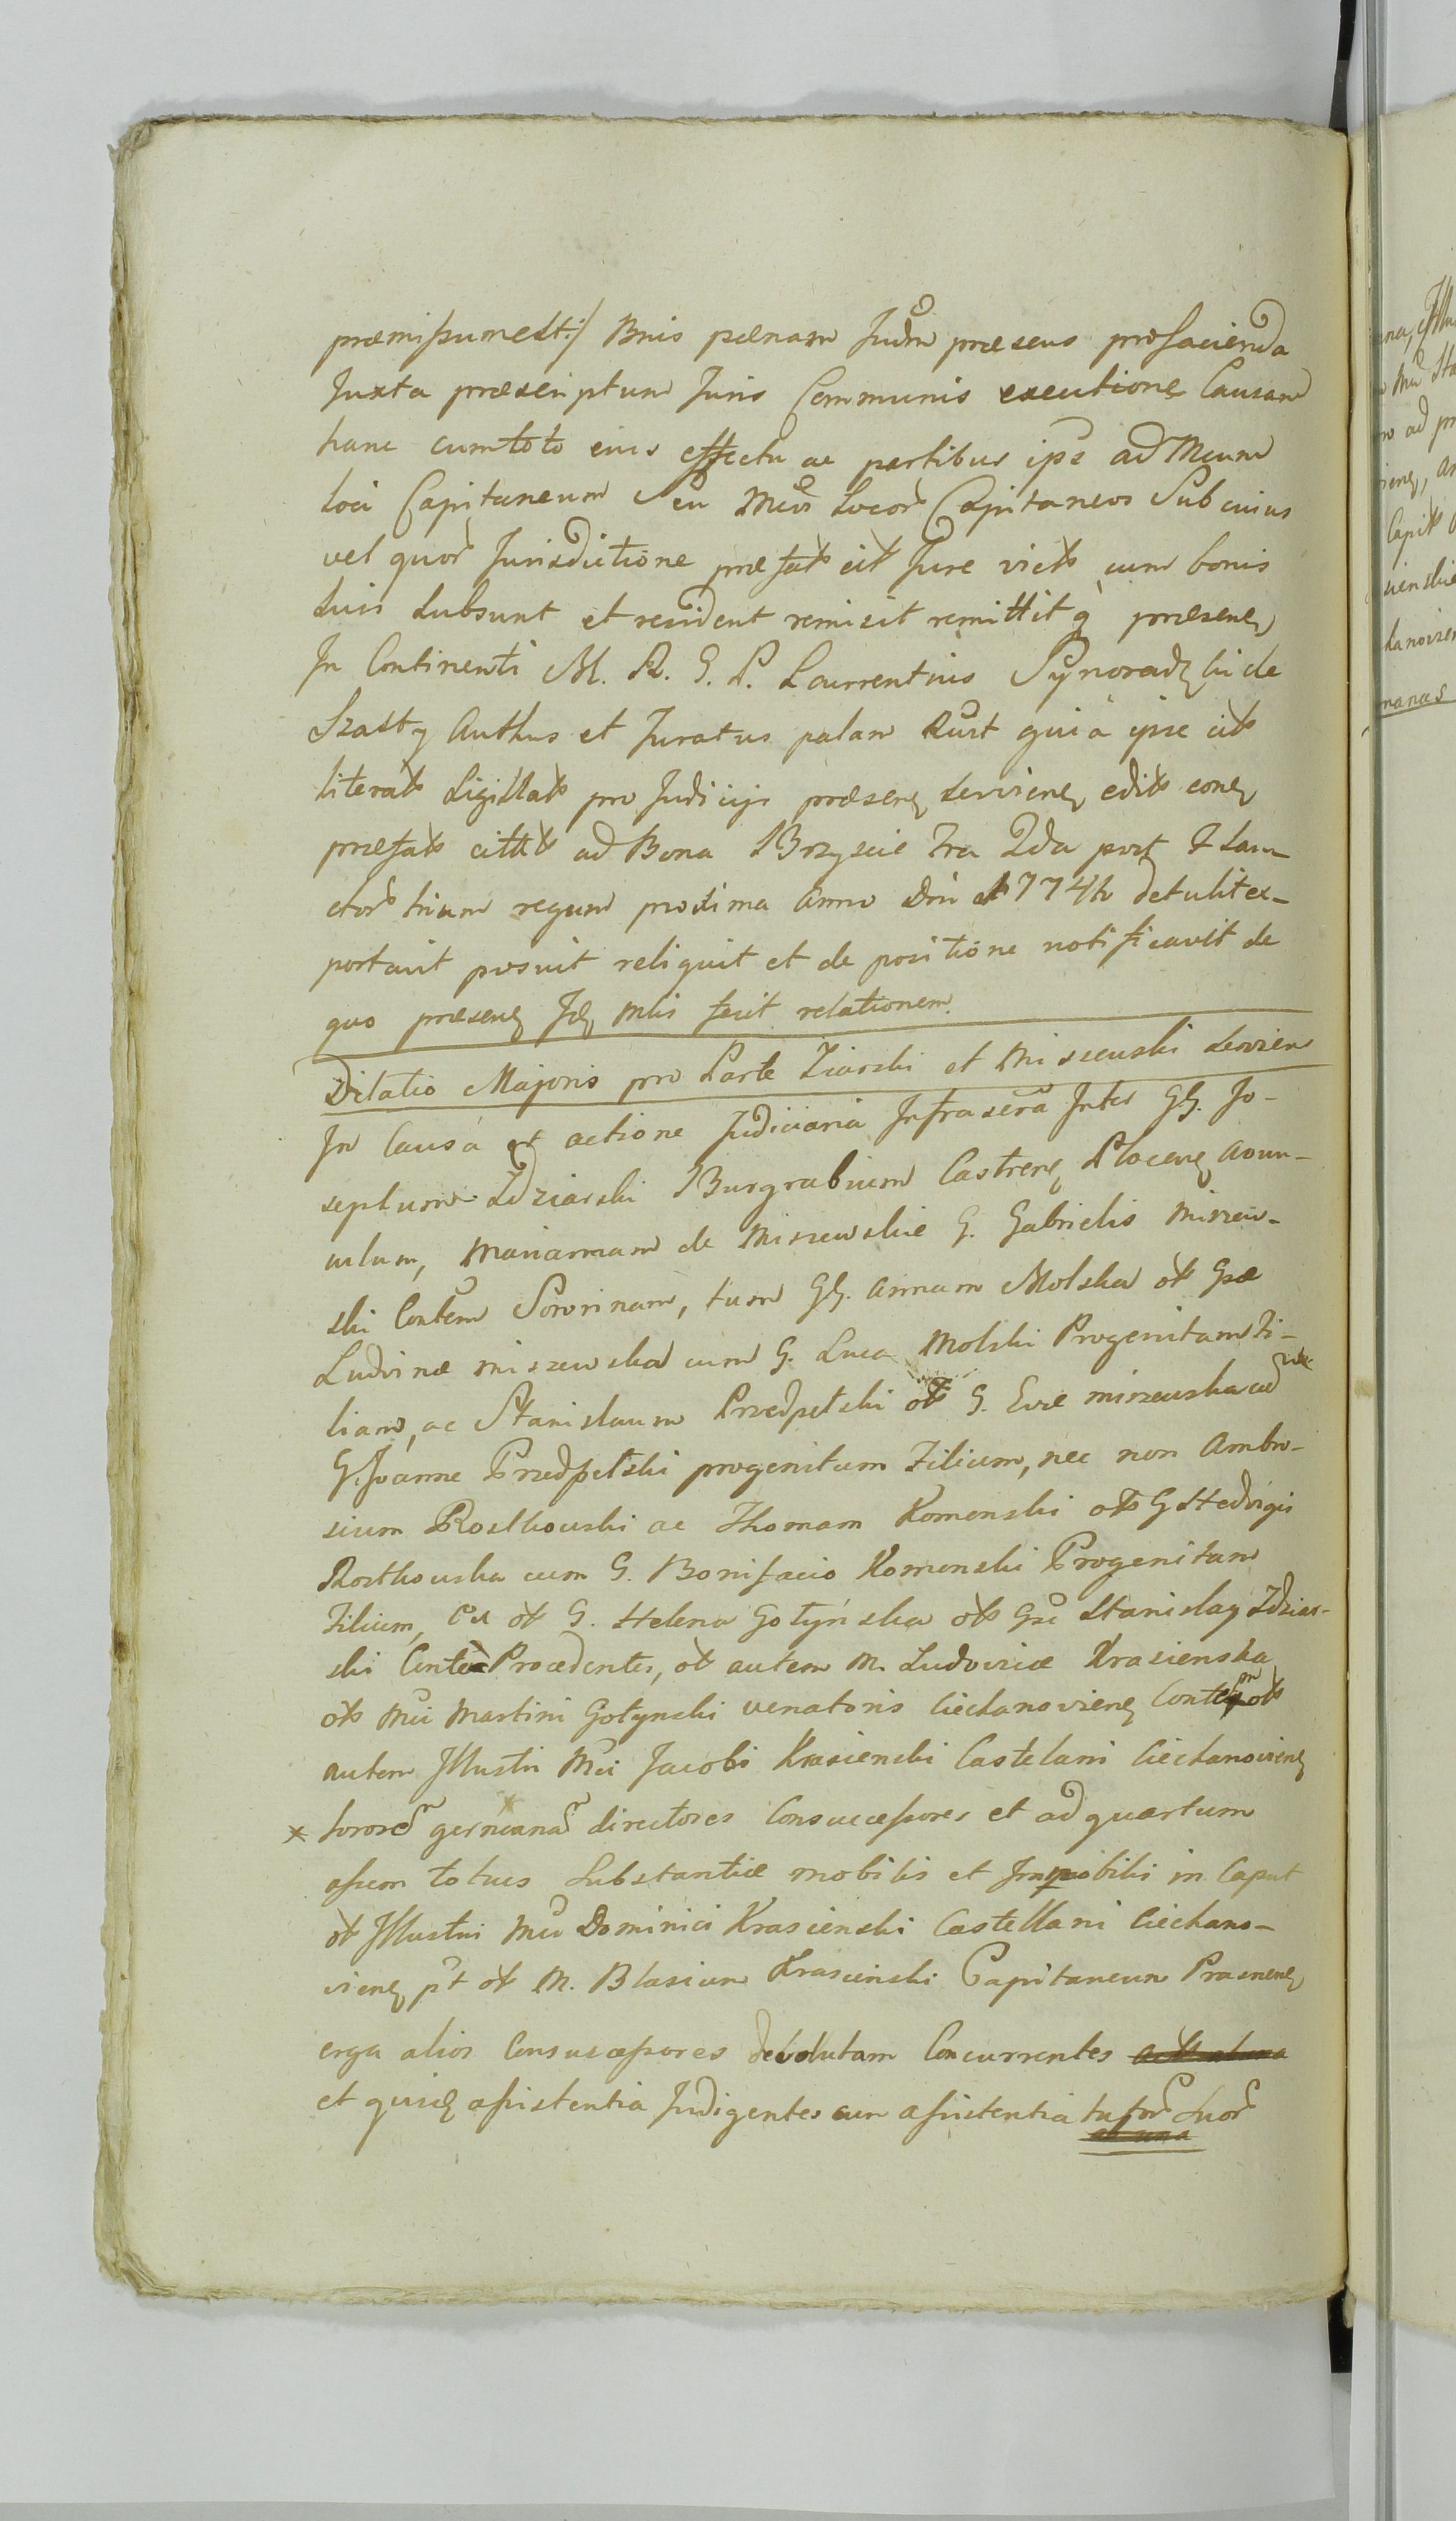 præmissum est:/ Bnis pœnam Judm præsens pro facienda
Juxta præscriptum Juris Communis executione Causam
hanc cum toto eius effectu ac partibus ips ad Mcum
Loci Capitaneum Seu Mcos Locor Capitaneos Sub cuius
vel quor Jurisdictione præfat cit Jure vict cum bonis
Suis Subsunt et resident remisit remittit q præsen
In Continenti M. R. G. P. Laurentius Synoradzki de
Szasty Authus et Juratus palam Rust quia ipse cit
literat Sigillat pro Judicijs præsen Servien edit eon
præfat citt ad Bona Brzyscie Fra 2da post F San-
ctor trium regum proxima Anno Dni 1774to detulit ex-
portavit posuit reliquit et de positione notificavit de
quo præsen Jd Mlis fecit relationem.
Dilatio Majoris pro Parte Ziarski et Miszewski Servien
In Causa et actione Judiciaria Infrascra Inter GG. Jo-
sephum Zdziarski Burgrabium Castren Plocen avun-
culum, Mariannam de Miszewskie G. Gabrielis Miszew-
ski Contem Sororinam, tum GG. Annam Molska ot Gsæ
Ludvinæ Miszewska cum G. Luca Molski Progenitam Fi-
liam, ac Stanislaum Przedpełski ot G. Evæ Miszewska cu
G. Joanne Przedpełski progenitum Filium, nec non Ambro-
sium Rostkowski ac Thomam Komenski ot G Hedvigis
Rostkowska cum G. Bonifacio Komenski Progenitam
Filium, ot G. Helena Gołyńska ot Gsi Stanislay Zdziar-
ski Conte Procedentes, ot autem M. Ludoviciæ Krasienska
ot Mci Martini Gołynski venatoris Ciechanovien Conte ot
autem Illustri Mci Jacobi Krasienski Castelani Ciechanovien
x Soror germana directores Consuccessores et ad quartum
assem totius Substantiæ mobilis et Immobili in Caput
ot Illustri Mci Dominici Krasienski Castellani Ciechano-
vien pt ot M. Blasium Krasienski Capitaneum Prasnen
erga alios Consuccessores devolutam Concurrentes
et quid assistentia Indigentes cum assistentia tutor Suor